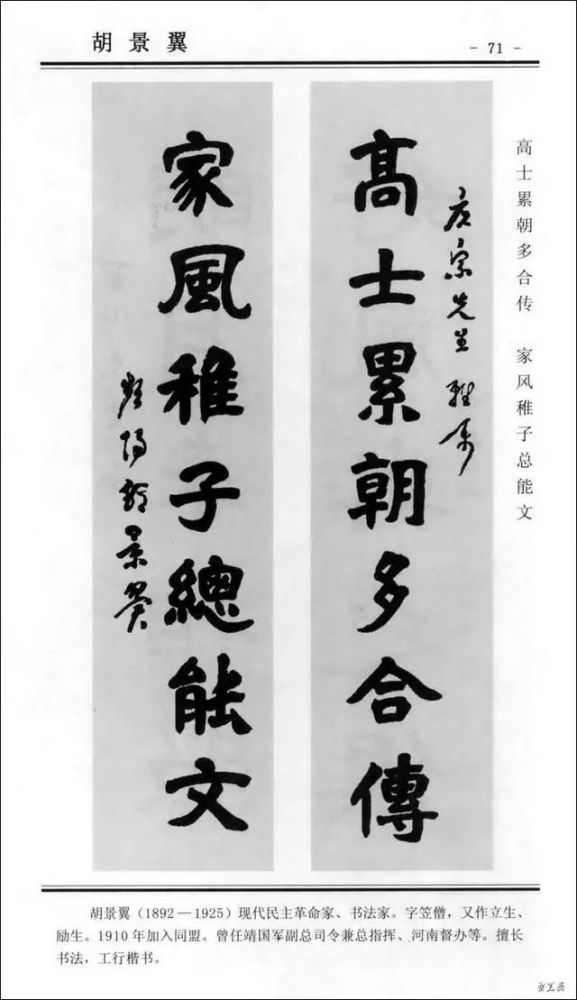 胡景翼
- 71 -
高士累朝多合传 家风稚子总能文
先生雅属
高士累朝多合傳
家風稚子總能文
胡景翼
胡景翼（1892—1925）现代民主革命家、书法家。字笠僧，又作立生、
励生。1910 年加入同盟。曾任靖国军副总司令兼总指挥、河南督办等。擅长
书法，工行楷书。